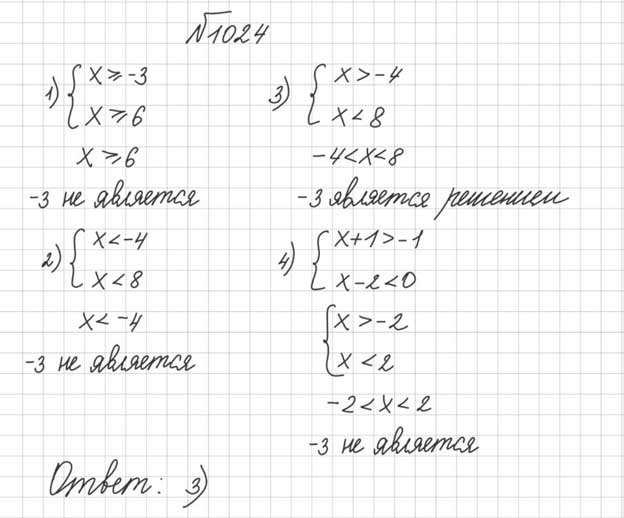 №1024
1) { x ⩾ -3
x ⩾ 6
x ⩾ 6
-3 не является
2) { x < -4
x < 8
x < -4
-3 не является
3) { x > -4
x < 8
-4 < x < 8
-3 является решением
4) { x+1 > -1
x-2 < 0
{ x > -2
x < 2
-2 < x < 2
-3 не является
Ответ: 3)